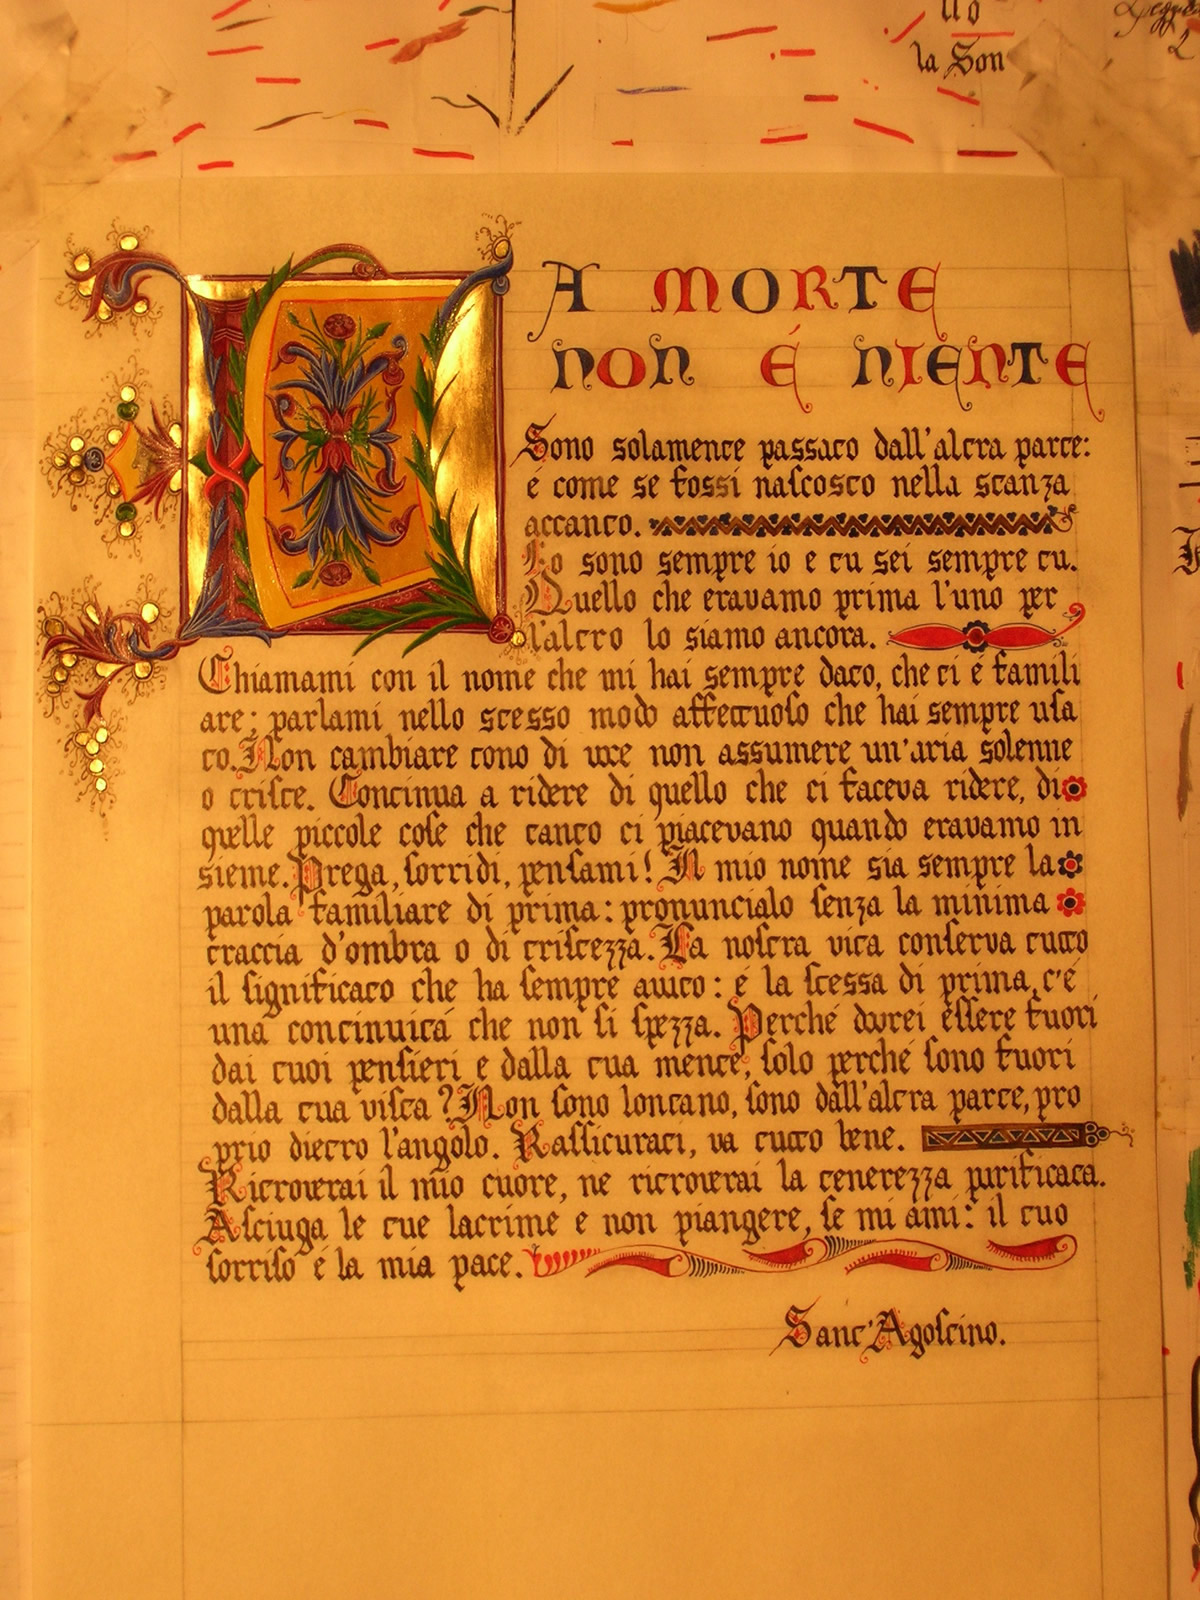 llo
la Son
LA MORTE
NON É NIENTE
Sono solamente passato dall'altra parte:
é come se fossi nascosto nella stanza
accanto.
Io sono sempre io e tu sei sempre tu.
Quello che eravamo prima l'uno per
l'altro lo siamo ancora.
Chiamami con il nome che mi hai sempre dato, che ti é famili
are; parlami nello stesso modo affettuoso che hai sempre usa
to. Non cambiare tono di voce non assumere un'aria solenne
o triste. Continua a ridere di quello che ci faceva ridere, di
quelle piccole cose che tanto ci piacevano quando eravamo in
sieme. Prega, sorridi, pensami! Il mio nome sia sempre la
parola familiare di prima: pronuncialo senza la minima
traccia d'ombra o di tristezza. La nostra vita conserva tutto
il significato che ha sempre avuto: é la stessa di prima, c'é
una continuitá che non si spezza. Perché dovrei essere fuori
dai tuoi pensieri e dalla tua mente, solo perché sono fuori
dalla tua vista? Non sono lontano, sono dall'altra parte, pro
prio dietro l'angolo. Rassicurati, va tutto bene.
Ritroverai il mio cuore, ne ritroverai la tenerezza purificata.
Asciuga le tue lacrime e non piangere, se mi ami: il tuo
sorriso é la mia pace.
Sant'Agostino.